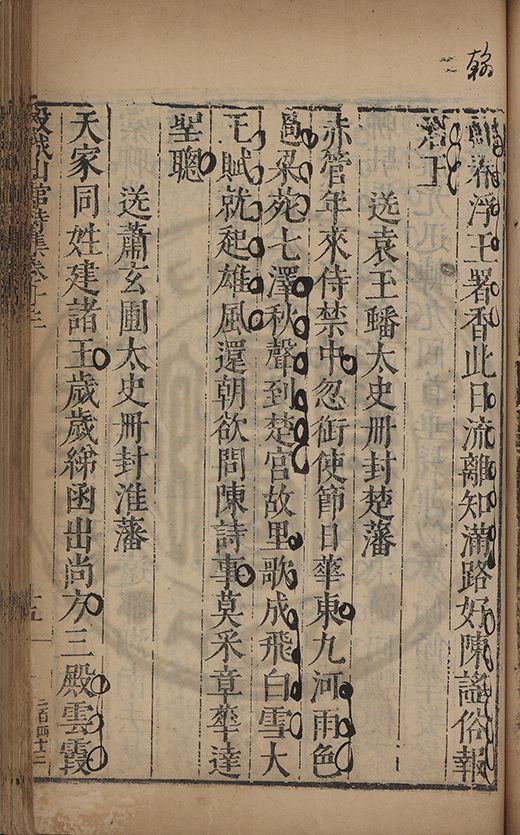 翰二
動袖浮玉署香此日流離知滿路好陳謠俗報
營上
送袁玉蟠太史冊封楚藩
赤管年來侍禁中忽銜使節日華東九河雨色
過梁苑七澤秋聲到楚宮故里歌成飛白雪大
王賦就起雄風還朝欲問陳詩事莫釆章華達
聖聰
送蕭玄圃太史冊封淮藩
天家同姓建諸王歲歲綈函出尚方三殿雲霞
穀城山館詩集卷十二
十五
二百四十三